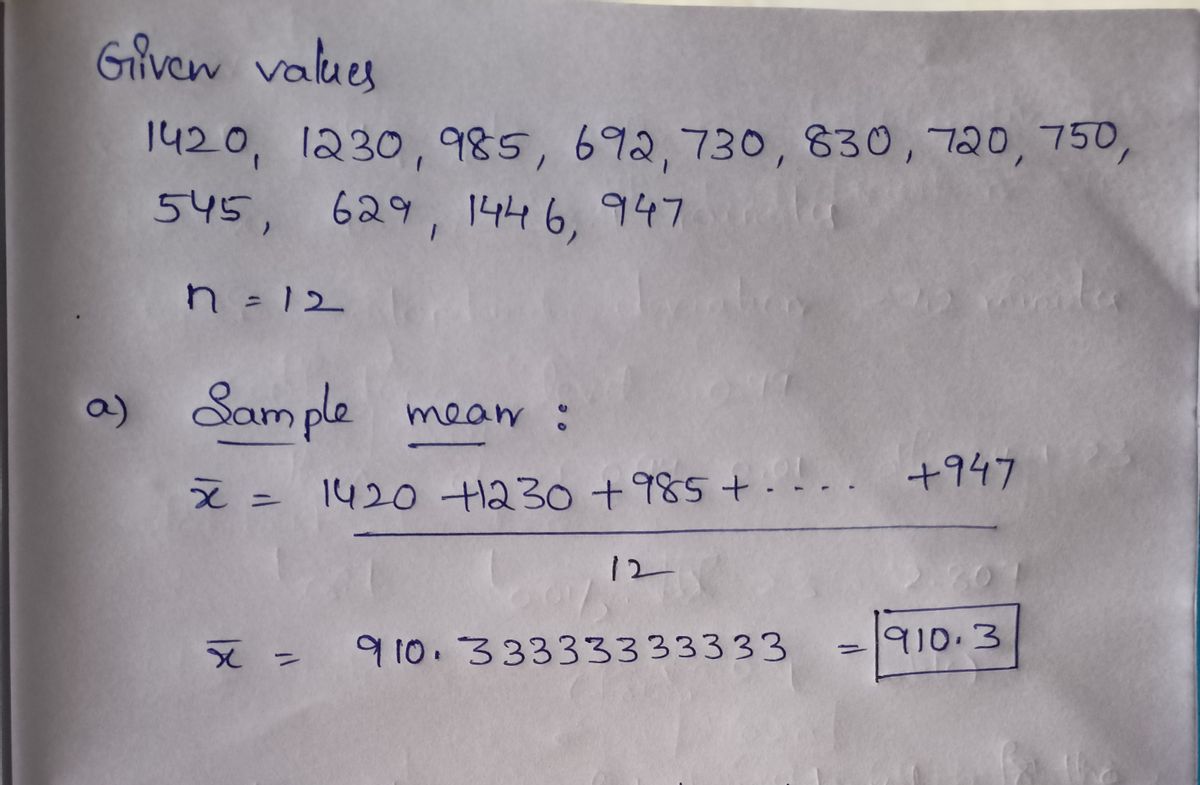 Given values
1420, 1230, 985, 692, 730, 830, 720, 750,
545, 629, 1446, 947
n = 12
a) Sample mean :
x̄ = 1420 +1230 +985 + ..... +947
12
x̄ = 910.33333333333 = 910.3